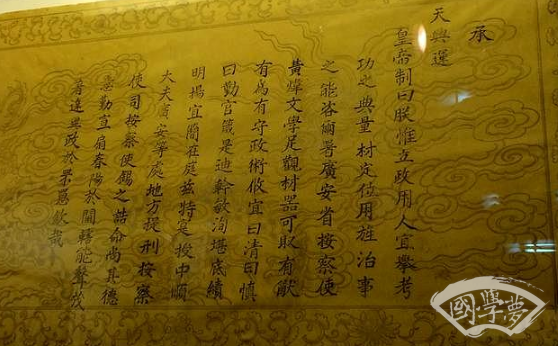 承
天興運
皇帝制曰朕惟立政用人宜舉考
功之典量材定位用旌治事
之能咨爾署廣安省按察使
黃煒文學足觀材器可取有猷
有為有守政術攸宜曰清曰慎
曰勤官箴是迪幹敏洵堪底績
明揚宜簡在庭茲特授中順
大夫廣安等處地方提刑按察
使司按察使錫之誥命尚其德
勤宣春陽於關轄能聲茂
著達政於景欽哉
國學夢